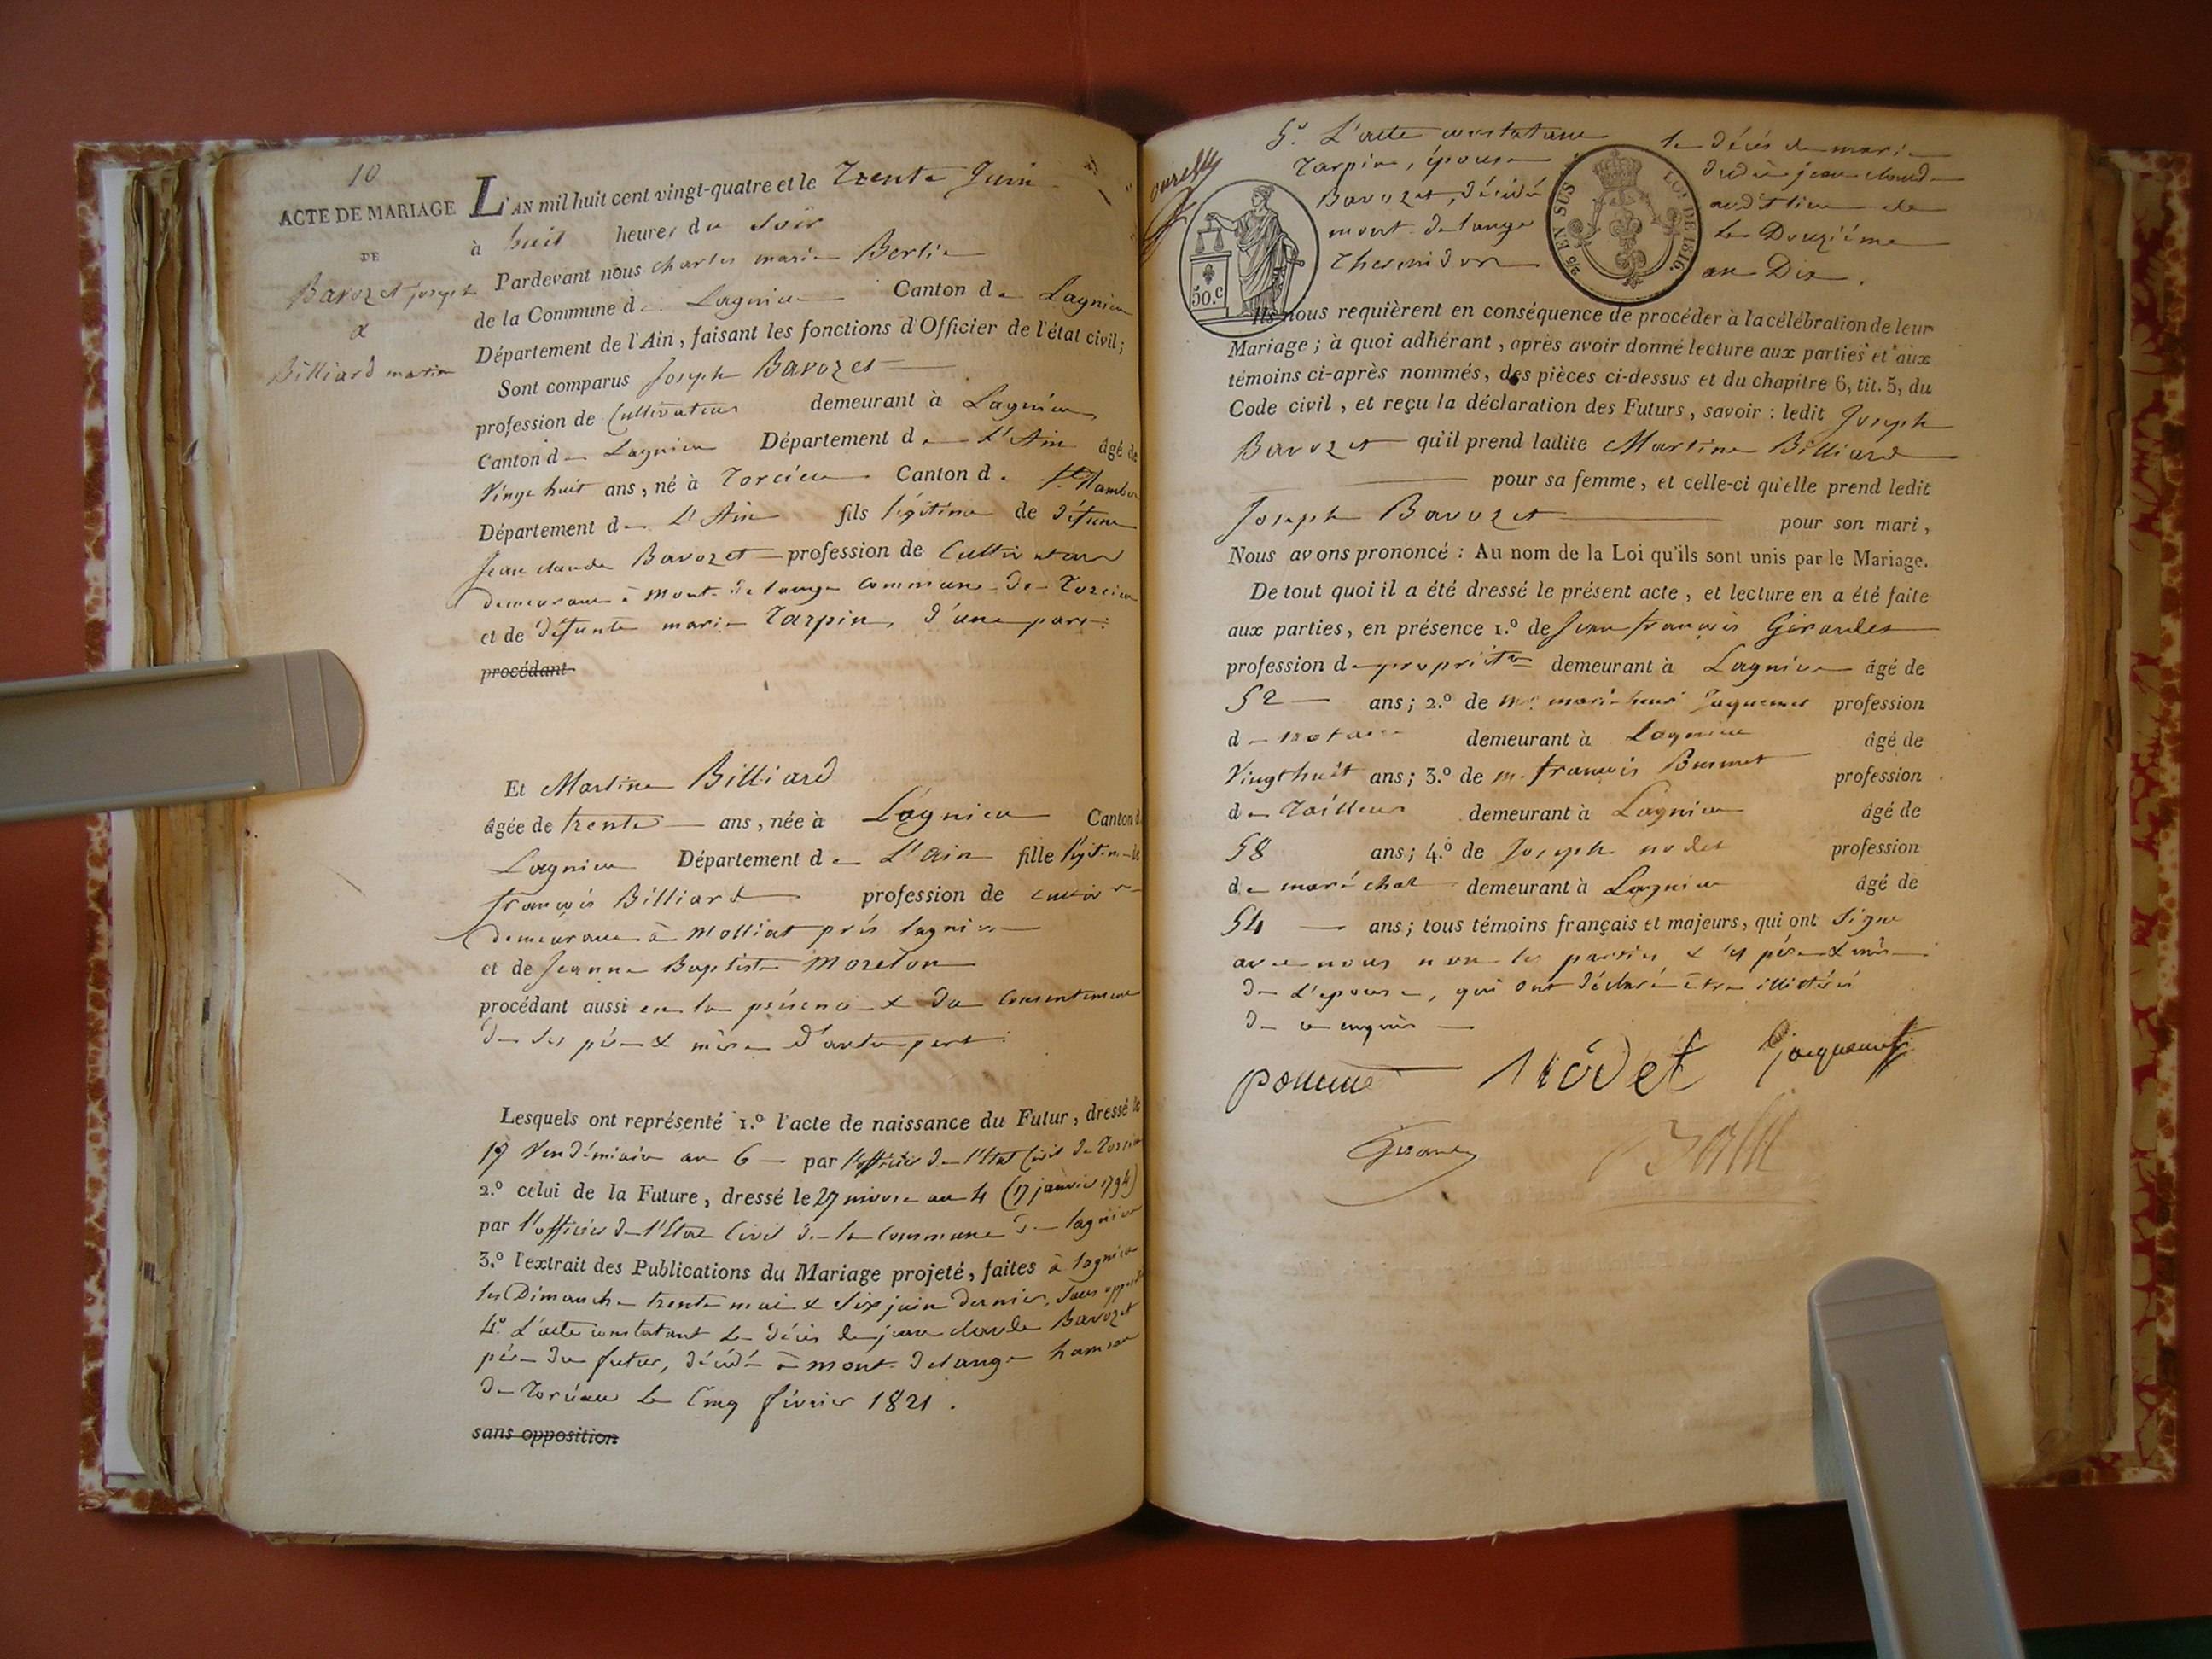 10
ACTE DE MARIAGE
DE
Bavozet joseph
&
Billiard martine
L'AN mil huit cent vingt-quatre et le Trente Juin
à huit heures du soir
Pardevant nous charles marie Berlie
de la Commune de Lagnieu Canton de Lagnieu
Département de l'Ain, faisant les fonctions d'Officier de l'état civil;
Sont comparus Joseph Bavozet
profession de Cultivateur demeurant à Lagnieu,
Canton de Lagnieu Département de L'Ain âgé de
Vingt huit ans, né à Torcieu Canton de St Rambert
Département de L'Ain fils légitime de défunt
Jean claude Bavozet profession de Cultivateur
demeurant à Mont-de lange commune de Torcieu
et de défunte marie Tarpin, d'une part.
procédant
Et Martine Billiard
âgée de trente ans, née à Lagnieu Canton de
Lagnieu Département de L'ain fille légitime de
françois Billiard profession de cultivr
demeurant à Molliat près lagnieu
et de Jeanne Baptiste Moreton
procédant aussi en la présence & du consentement
de ses père & mère d'autre part.
Lesquels ont représenté 1.º l'acte de naissance du Futur, dressé le
17 Vendémiaire an 6 par l'officier de l'Etat Civil de Torcieu
2.º celui de la Future, dressé le 27 nivose an 4 (17 janvier 1794)
par l'officier de l'Etat Civil de la Commune de lagnieu
3.º l'extrait des Publications du Mariage projeté, faites à lagnieu
les Dimanche trente mai & six juin dernier, sans oppon
4.º L'acte constatant le décès de jean claude Bavozet
père du futur, décédé à mont-delange hameau
de Torcieu le Cinq février 1821.
sans opposition
5.º L'acte constatant le décès de marie
Tarpin, épouse dudit jean claude
Bavozet, décédée audit lieu de
mont-delange le Douzième
Thermidor an Dix.
50.C
2/5 EN SUS
LOI DE 1816.
Ils nous requièrent en conséquence de procéder à la célébration de leur
Mariage; à quoi adhérant, après avoir donné lecture aux parties et aux
témoins ci-après nommés, des pièces ci-dessus et du chapitre 6, tit. 5, du
Code civil, et reçu la déclaration des Futurs, savoir : ledit Joseph
Bavozet qu'il prend ladite Martine Billiard
pour sa femme, et celle-ci qu'elle prend ledit
Joseph Bavozet pour son mari,
Nous avons prononcé : Au nom de la Loi qu'ils sont unis par le Mariage.
De tout quoi il a été dressé le présent acte, et lecture en a été faite
aux parties, en présence 1.º de Jean françois Giraudet
profession de propriétre demeurant à Lagnieu âgé de
52 ans; 2.º de mr. marie Jaquemet profession
de notaire demeurant à Lagnieu âgé de
Vingthuit ans; 3.º de m. françois profession
de Tailleur demeurant à Lagnieu âgé de
58 ans; 4.º de Joseph nodet profession
de maréchal demeurant à Lagnieu âgé de
54 ans; tous témoins français et majeurs, qui ont signé
avec nous non les parties & les père & mère
de l'épouse, qui ont déclaré être illitérés
de ce enquis
nódet Jacquemet